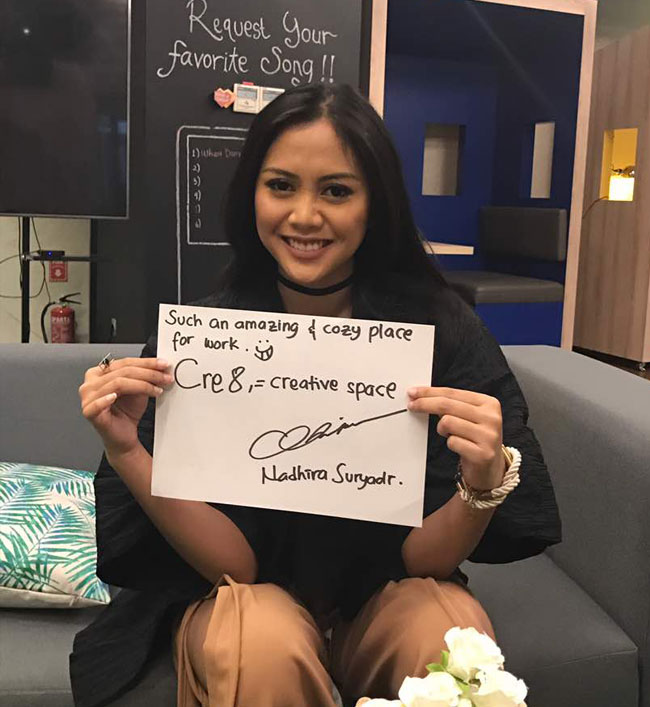 Request Your
favorite Song!!
1)
2)
3)
4)
6)
Such an amazing & cozy place
for work.
Cre8,= creative space
Nadhira Suryadr.